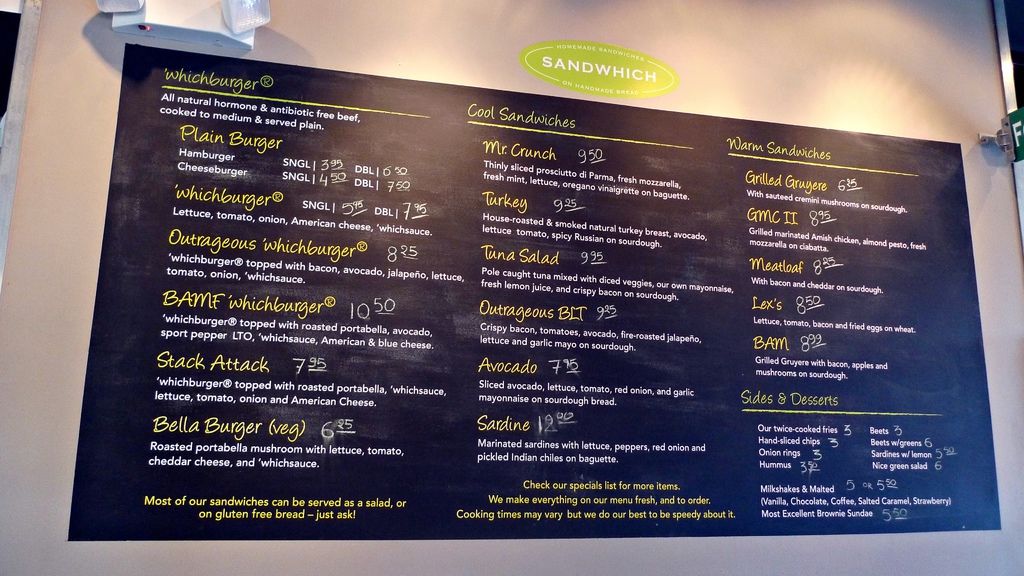 HOMEMADE SANDWICHES
SANDWHICH
ON HANDMADE BREAD
'whichburger®
All natural hormone & antibiotic free beef,
cooked to medium & served plain.
Plain Burger
Hamburger SNGL | 3 95 DBL | 6 50
Cheeseburger SNGL | 4 50 DBL | 7 50
'whichburger® SNGL | 5 95 DBL | 7 95
Lettuce, tomato, onion, American cheese, 'whichsauce.
Outrageous 'whichburger® 8 25
'whichburger® topped with bacon, avocado, jalapeño, lettuce,
tomato, onion, 'whichsauce.
BAMF 'whichburger® 10 50
'whichburger® topped with roasted portabella, avocado,
sport pepper LTO, 'whichsauce, American & blue cheese.
Stack Attack 7 95
'whichburger® topped with roasted portabella, 'whichsauce,
lettuce, tomato, onion and American Cheese.
Bella Burger (veg) 6 25
Roasted portabella mushroom with lettuce, tomato,
cheddar cheese, and 'whichsauce.
Most of our sandwiches can be served as a salad, or
on gluten free bread – just ask!
Cool Sandwiches
Mr. Crunch 9 50
Thinly sliced prosciutto di Parma, fresh mozzarella,
fresh mint, lettuce, oregano vinaigrette on baguette.
Turkey 9 25
House-roasted & smoked natural turkey breast, avocado,
lettuce tomato, spicy Russian on sourdough.
Tuna Salad 9 95
Pole caught tuna mixed with diced veggies, our own mayonnaise,
fresh lemon juice, and crispy bacon on sourdough.
Outrageous BLT 9 25
Crispy bacon, tomatoes, avocado, fire-roasted jalapeño,
lettuce and garlic mayo on sourdough.
Avocado 7 95
Sliced avocado, lettuce, tomato, red onion, and garlic
mayonnaise on sourdough bread.
Sardine 12 00
Marinated sardines with lettuce, peppers, red onion and
pickled Indian chiles on baguette.
Check our specials list for more items.
We make everything on our menu fresh, and to order.
Cooking times may vary but we do our best to be speedy about it.
Warm Sandwiches
Grilled Gruyere 6 25
With sauteed cremini mushrooms on sourdough.
GMC II 8 95
Grilled marinated Amish chicken, almond pesto, fresh
mozzarella on ciabatta.
Meatloaf 8 25
With bacon and cheddar on sourdough.
Lex's 8 50
Lettuce, tomato, bacon and fried eggs on wheat.
BAM 8 99
Grilled Gruyere with bacon, apples and
mushrooms on sourdough.
Sides & Desserts
Our twice-cooked fries 3
Hand-sliced chips 3
Onion rings 3
Hummus 3 50
Beets 3
Beets w/greens 6
Sardines w/ lemon 5 50
Nice green salad 6
Milkshakes & Malted 5 OR 5 50
(Vanilla, Chocolate, Coffee, Salted Caramel, Strawberry)
Most Excellent Brownie Sundae 5 50
F